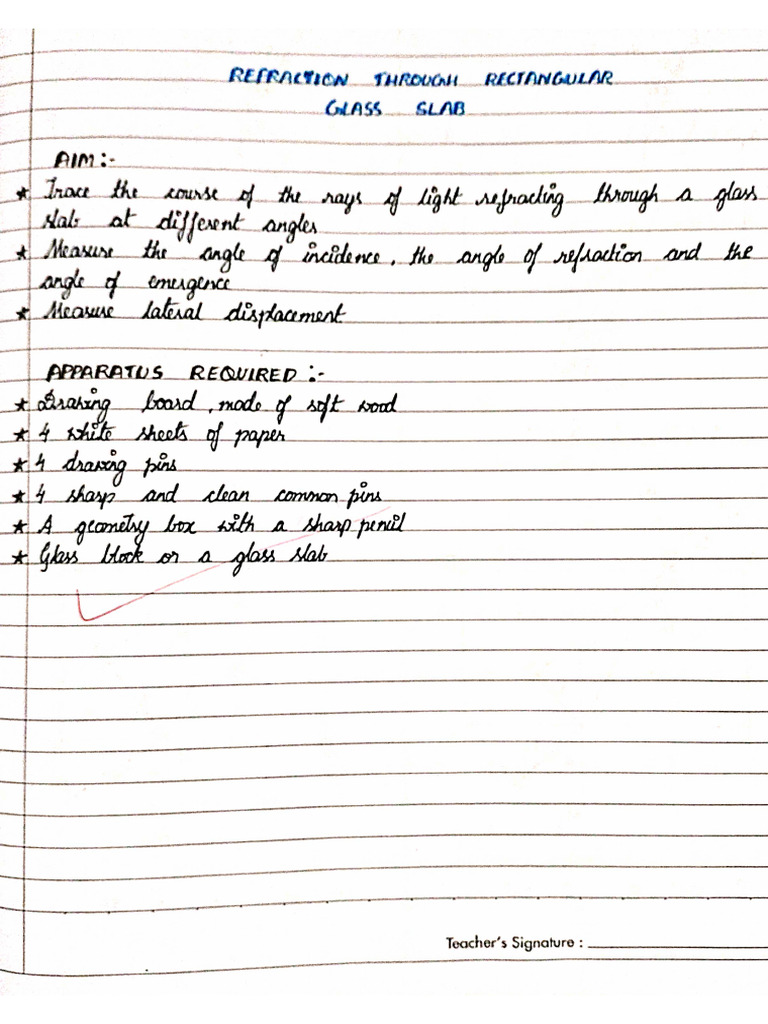 REFRACTION THROUGH RECTANGULAR
GLASS SLAB
AIM:-
★ Trace the course of the rays of light refracting through a glass
slab at different angles
★ Measure the angle of incidence, the angle of refraction and the
angle of emergence
★ Measure lateral displacement
APPARATUS REQUIRED:-
★ Drawing board, made of soft wood
★ 4 white sheets of paper
★ 4 drawing pins
★ 4 sharp and clean common pins
★ A geometry box with a sharp pencil
★ Glass block or a glass slab
Teacher's Signature :